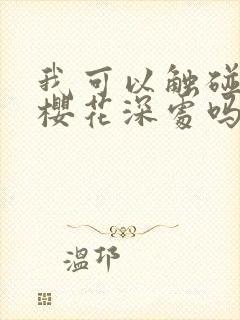 我可以触碰
樱花深处吗
温邛